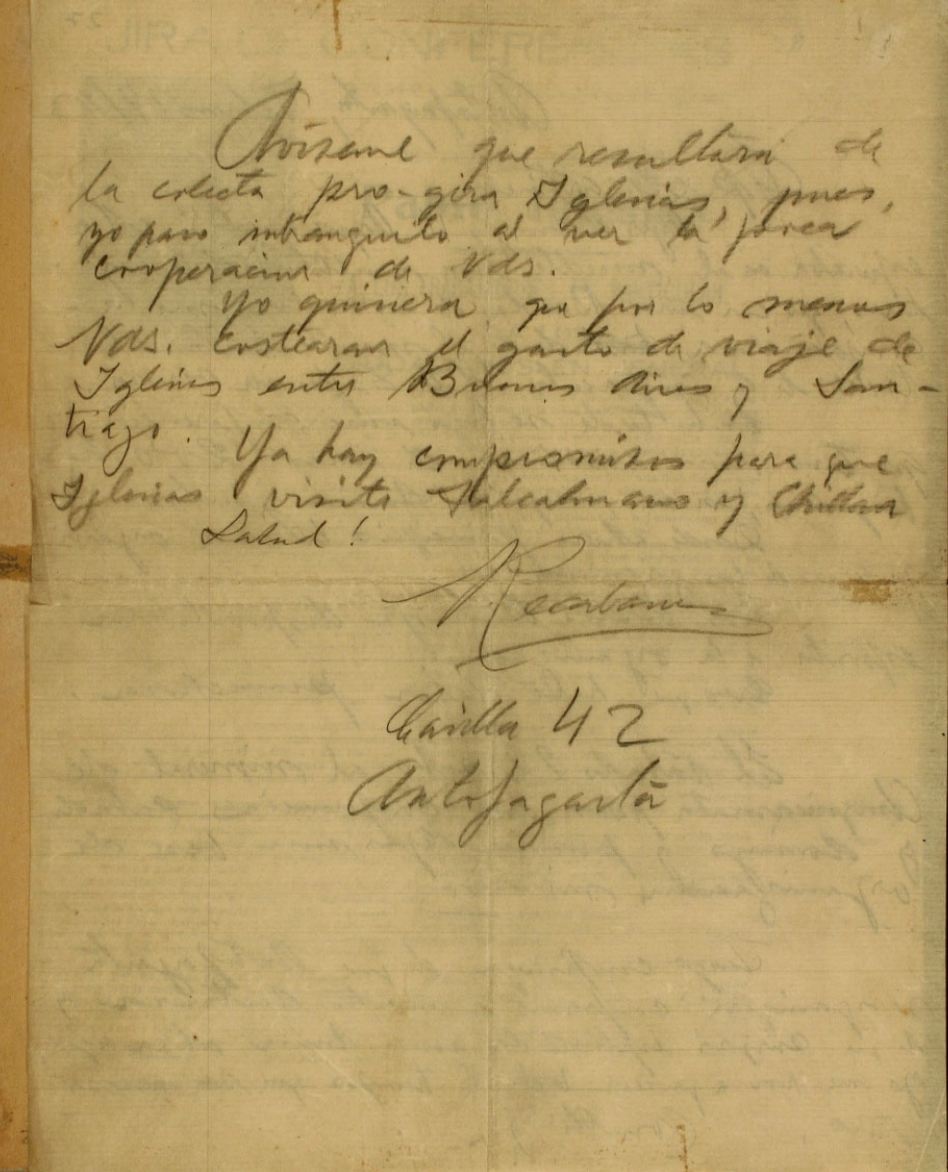 Avísame que resultara de
la colecta pro-gira Iglesias, pues,
yo paso intranquilo al ver la poca
cooperacion de Vds.
Yo quisiera que por lo menos
Vds. costearan el gasto de viaje de
Iglesias entre Buenos Aires y San-
tiago.
Ya hay compromisos para que
Iglesias visite Talcahuano y Chillan
Salud!
Recabarren
Casilla 42
Antofagasta